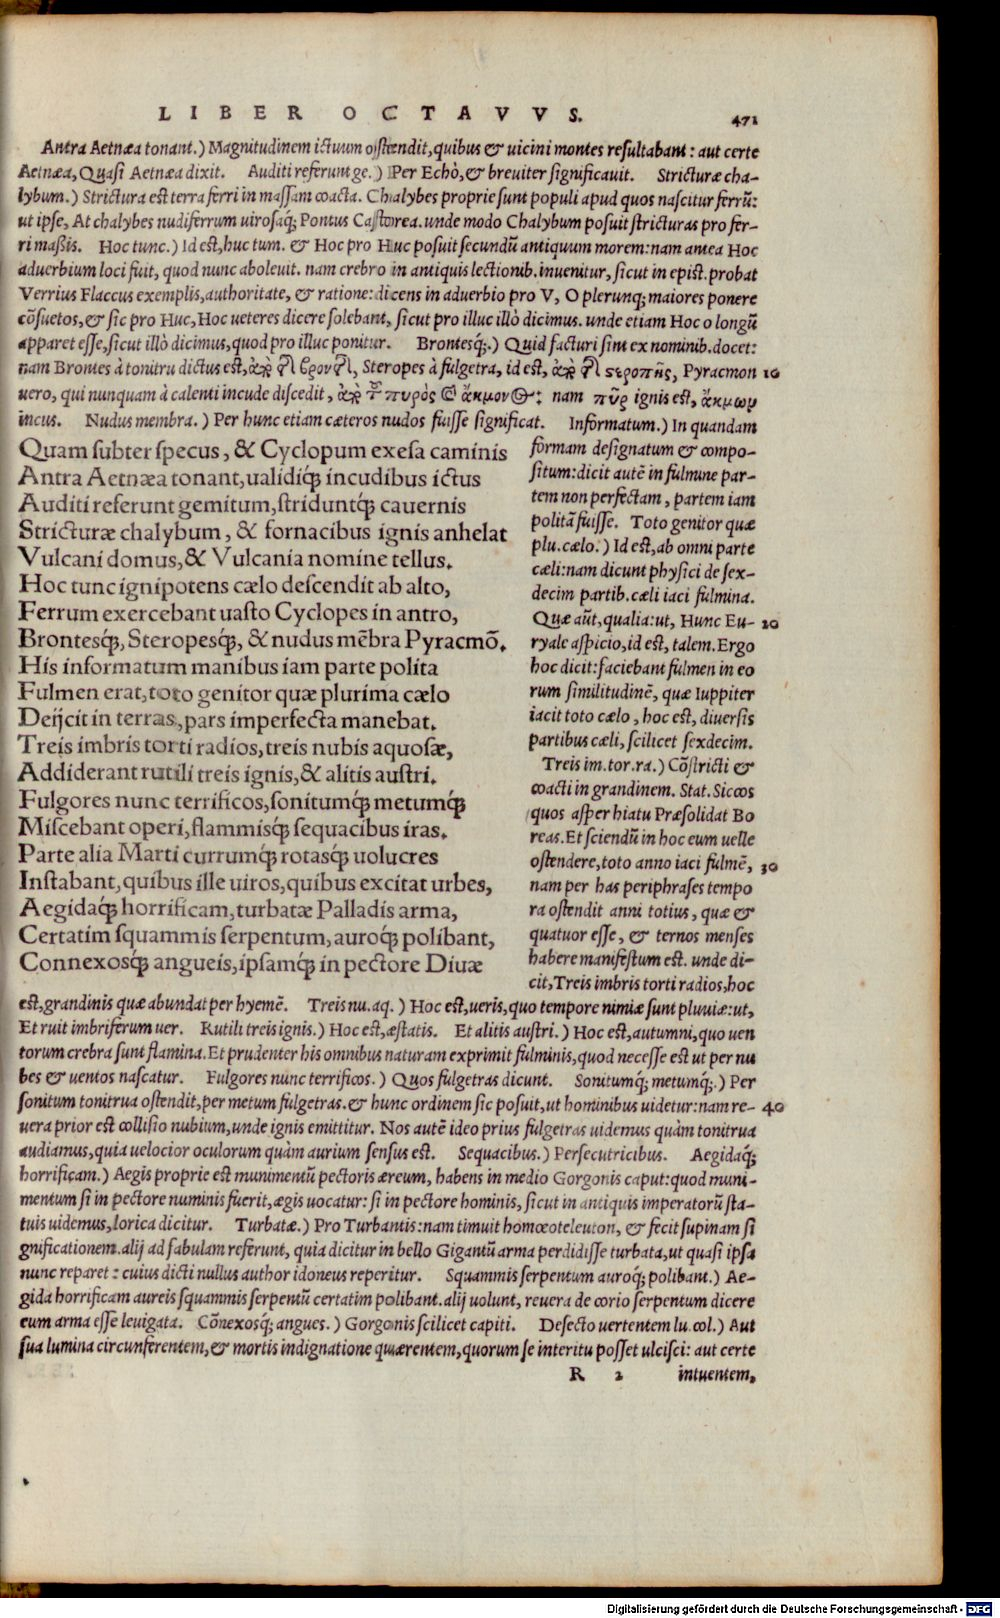 LIBER OCTAVVS. 471
Antra Aetnæa tonant.) Magnitudinem ictuum ostendit, quibus & uicini montes resultabant: aut certe
Aetnæa, Quasi Aetnæa dixit. Auditi referunt ge.) Per Echò, & breuiter significauit. Stricturæ cha-
lybum.) Strictura est terra ferri in massam coacta. Chalybes proprie sunt populi apud quos nascitur ferrũ:
ut ipse, At chalybes nudi ferrum uirosaq́; Pontus Castorea. unde modo Chalybum posuit stricturas pro fer-
ri maßis. Hoc tunc.) Id est, huc tum. & Hoc pro Huc posuit secundũ antiquum morem: nam antea Hoc
aduerbium loci fuit, quod nunc aboleuit. nam crebro in antiquis lectionib. inuenitur, sicut in epist. probat
Verrius Flaccus exemplis, authoritate, & ratione: dicens in aduerbio pro V, O plerunq; maiores ponere
cõsuetos, & sic pro Huc, Hoc ueteres dicere solebant, sicut pro illuc illò dicimus. unde etiam Hoc o longũ
apparet esse, sicut illò dicimus, quod pro illuc ponitur. Brontesq́;.) Quid facturi sint ex nominib. docet:
nam Brontes à tonitru dictus est, Steropes à fulgetra, id est, στεροπῆς, Pyracmon 10
uero, qui nunquam à calenti incude discedit, πυρὸς ἄκμονος: nam πῦρ ignis est, ἄκμων
incus. Nudus membra.) Per hunc etiam cæteros nudos fuisse significat. Informatum.) In quandam
Quam subter specus, & Cyclopum exesa caminis
Antra Aetnæa tonant, ualidiq́; incudibus ictus
Auditi referunt gemitum, striduntq́; cauernis
Stricturæ chalybum, & fornacibus ignis anhelat
Vulcani domus, & Vulcania nomine tellus.
Hoc tunc ignipotens cælo descendit ab alto,
Ferrum exercebant uasto Cyclopes in antro,
Brontesq́;, Steropesq́;, & nudus mẽbra Pyracmõ.
His informatum manibus iam parte polita
Fulmen erat, toto genitor quæ plurima cælo
Deijcit in terras, pars imperfecta manebat.
Treis imbris torti radios, treis nubis aquosæ,
Addiderant rutili treis ignis, & alitis austri.
Fulgores nunc terrificos, sonitumq́; metumq́;
Miscebant operi, flammisq́; sequacibus iras.
Parte alia Marti currumq́; rotasq́; uolucres
Instabant, quibus ille uiros, quibus excitat urbes,
Aegidaq́; horrificam, turbatæ Palladis arma,
Certatim squammis serpentum, auroq́; polibant,
Connexosq́; angueis, ipsamq́; in pectore Diuæ
formam designatum & compo-
situm: dicit autẽ in fulmine par-
tem non perfectam, partem iam
politã fuisse. Toto genitor quæ
plu. cælo.) Id est, ab omni parte
cæli: nam dicunt physici de sex-
decim partib. cæli iaci fulmina.
Quæ aũt, qualia: ut, Hunc Eu- 20
ryale aspicio, id est, talem. Ergo
hoc dicit: faciebant fulmen in eo
rum similitudinẽ, quæ Iuppiter
iacit toto cælo, hoc est, diuersis
partibus cæli, scilicet sexdecim.
Treis im. tor. ra.) Cõstricti &
coacti in grandinem. Stat. Siccos
quos asper hiatu Præsolidat Bo
reas. Et sciendũ in hoc eum uelle
ostendere, toto anno iaci fulmẽ, 30
nam per has periphrases tempo
ra ostendit anni totius, quæ &
quatuor esse, & ternos menses
habere manifestum est. unde di-
cit, Treis imbris torti radios, hoc
est, grandinis quæ abundat per hyemẽ. Treis nu. aq.) Hoc est, ueris, quo tempore nimiæ sunt pluuiæ: ut,
Et ruit imbriferum uer. Rutili treis ignis.) Hoc est, æstatis. Et alitis austri.) Hoc est, autumni, quo uen
torum crebra sunt flamina. Et prudenter his omnibus naturam exprimit fulminis, quod necesse est ut per nu
bes & uentos nascatur. Fulgores nunc terrificos.) Quos fulgetras dicunt. Sonitumq́; metumq́;.) Per
sonitum tonitrua ostendit, per metum fulgetras. & hunc ordinem sic posuit, ut hominibus uidetur: nam re- 40
uera prior est collisio nubium, unde ignis emittitur. Nos autẽ ideo prius fulgetras uidemus quàm tonitrua
audiamus, quia uelocior oculorum quàm aurium sensus est. Sequacibus.) Persecutricibus. Aegidaq́;
horrificam.) Aegis proprie est munimentũ pectoris æreum, habens in medio Gorgonis caput: quod muni-
mentum si in pectore numinis fuerit, ægis uocatur: si in pectore hominis, sicut in antiquis imperatorũ sta-
tuis uidemus, lorica dicitur. Turbatæ.) Pro Turbantis: nam timuit homœoteleuton, & fecit supinam si
gnificationem. alij ad fabulam referunt, quia dicitur in bello Gigantũ arma perdidisse turbata, ut quasi ipsa
nunc reparet: cuius dicti nullus author idoneus reperitur. Squammis serpentum auroq́; polibant.) Ae-
gida horrificam aureis squammis serpentũ certatim polibant. alij uolunt, reuera de corio serpentum dicere
eum arma esse leuigata. Cõnexosq́; angues.) Gorgonis scilicet capiti. Desecto uertentem lu. col.) Aut
sua lumina circunferentem, & mortis indignatione quærentem, quorum se interitu posset ulcisci: aut certe
R 2 intuentem,
Digitalisierung gefördert durch die Deutsche Forschungsgemeinschaft - DFG